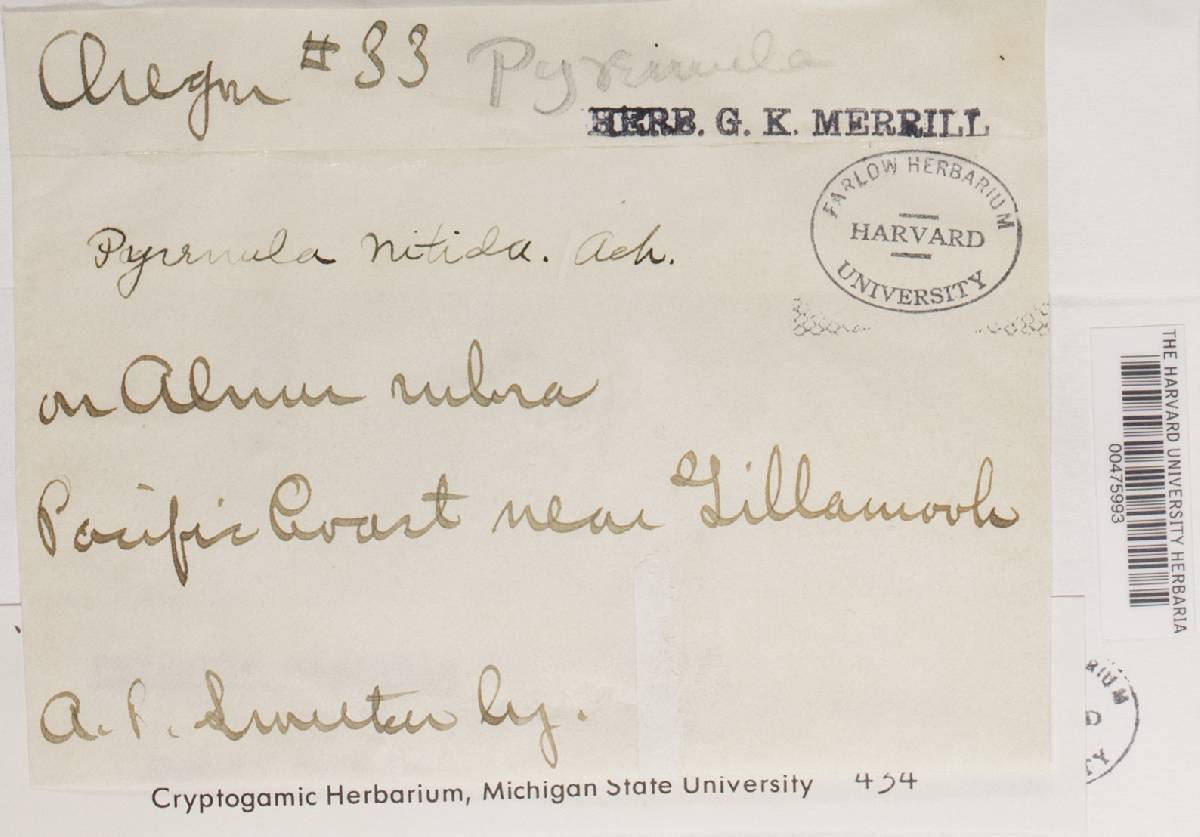 Oregon #33 Pyrenula
HERB. G. K. MERRILL
FARLOW HERBARIUM
HARVARD
UNIVERSITY
Pyrenula nitida. Ach.
on Alnus rubra
Pacific Coast near Tillamook
A. P.
Cryptogamic Herbarium, Michigan State University 434
THE HARVARD UNIVERSITY HERBARIA
00475993